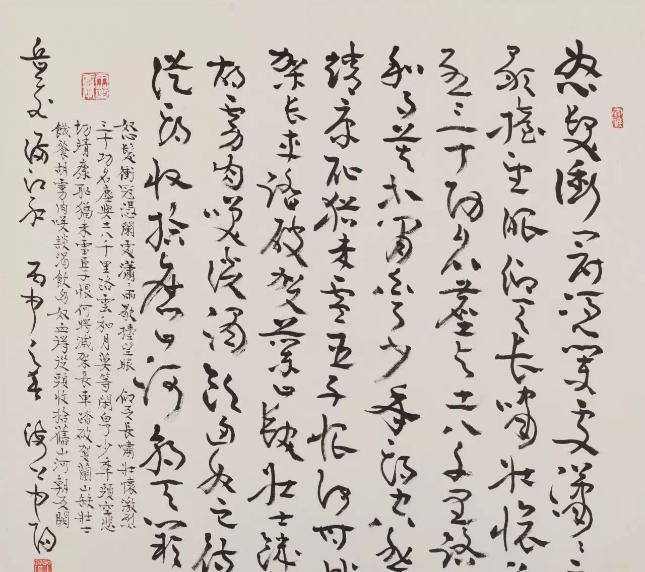 怒髮衝冠憑闌處瀟瀟
歇擡望眼仰天長嘯壯懷
烈三十功名塵与土八千里路
和月莫等閒白了少年頭空悲
靖康恥猶未雪臣子恨何時
駕長車踏破賀蘭山缺壯士
胡虜肉笑談渴飲匈奴血待
從頭收拾舊山河朝天闕
怒髮衝冠憑闌處瀟瀟雨歇擡望眼仰天長嘯壯懷激烈
三十功名塵與土八千里路雲和月莫等閒白了少年頭空悲
切靖康恥猶未雪臣子恨何時滅駕長車踏破賀蘭山缺壯士
饑餐胡虜肉笑談渴飲匈奴血待從頭收拾舊山河朝天闕
岳飛滿江紅 丙申之春 海上